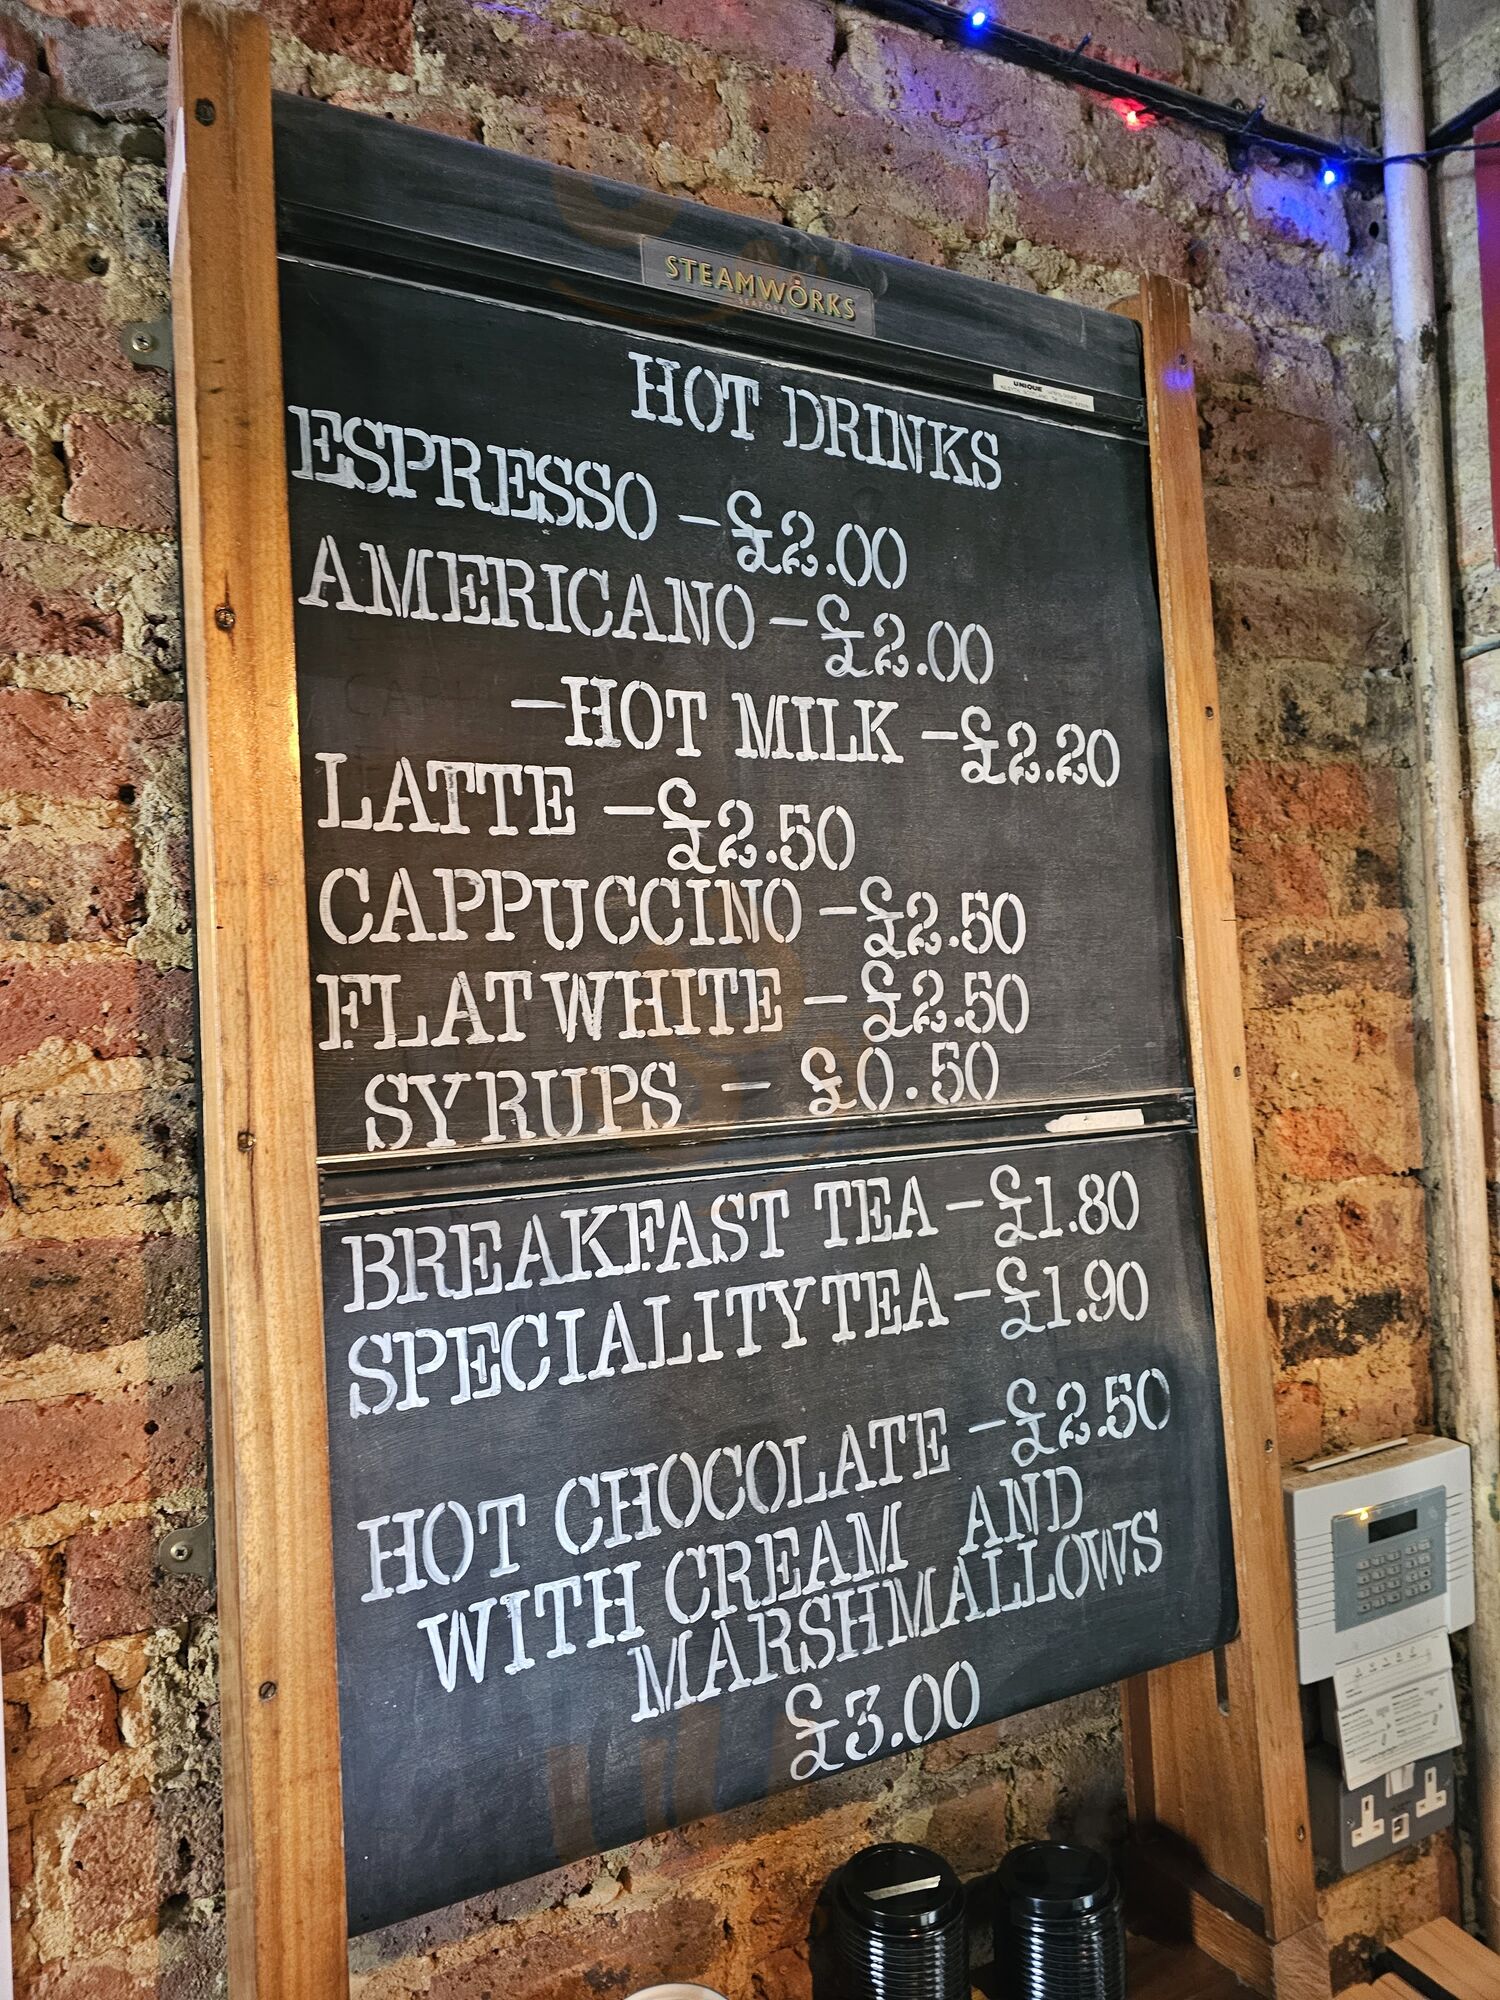 STEAMWORKS
UNIQUE
HOT DRINKS
ESPRESSO - £2.00
AMERICANO - £2.00
- HOT MILK - £2.20
LATTE - £2.50
CAPPUCCINO - £2.50
FLAT WHITE - £2.50
SYRUPS - £0.50
BREAKFAST TEA - £1.80
SPECIALITY TEA - £1.90
HOT CHOCOLATE - £2.50
WITH CREAM AND
MARSHMALLOWS
£3.00